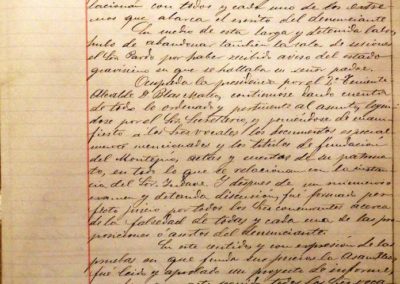 lacionan con todos y cada uno de los extre-
mos que abarca el escrito del denunciante
En medio de esta larga y detenida labor,
hubo de abandonar tambien la sala de sesiones
el Sr. Pardo por haber recibido aviso del estado
gravisimo en que se hallaba su señor padre.
Ocupada la presidencia por el 2º Teniente
Alcalde D. Blas Mateo, continuose dando cuenta
de todo lo ordenado y pertinente al asunto, leyen-
dose por el Sr. Secretario, y poniendose de mani-
fiesto a los Sres. vocales los documentos especial-
mente mencionados y los titulos de fundacion
del Montepio, actas y cuentas de su patrona-
to, en todo lo que se relacionan con la instan-
cia del Sr. Y despues de un minucioso
examen y detenida discusion, fué formado per-
fecto juicio por todos los Sres. concurrentes acerca
de la falsedad de todas y cada una de las pro-
posiciones ó asertos del denunciante.
En este sentido y con expresion de las
pruebas en que funda su juicio la Asamblea,
fué leido y aprobado un proyecto de informe,